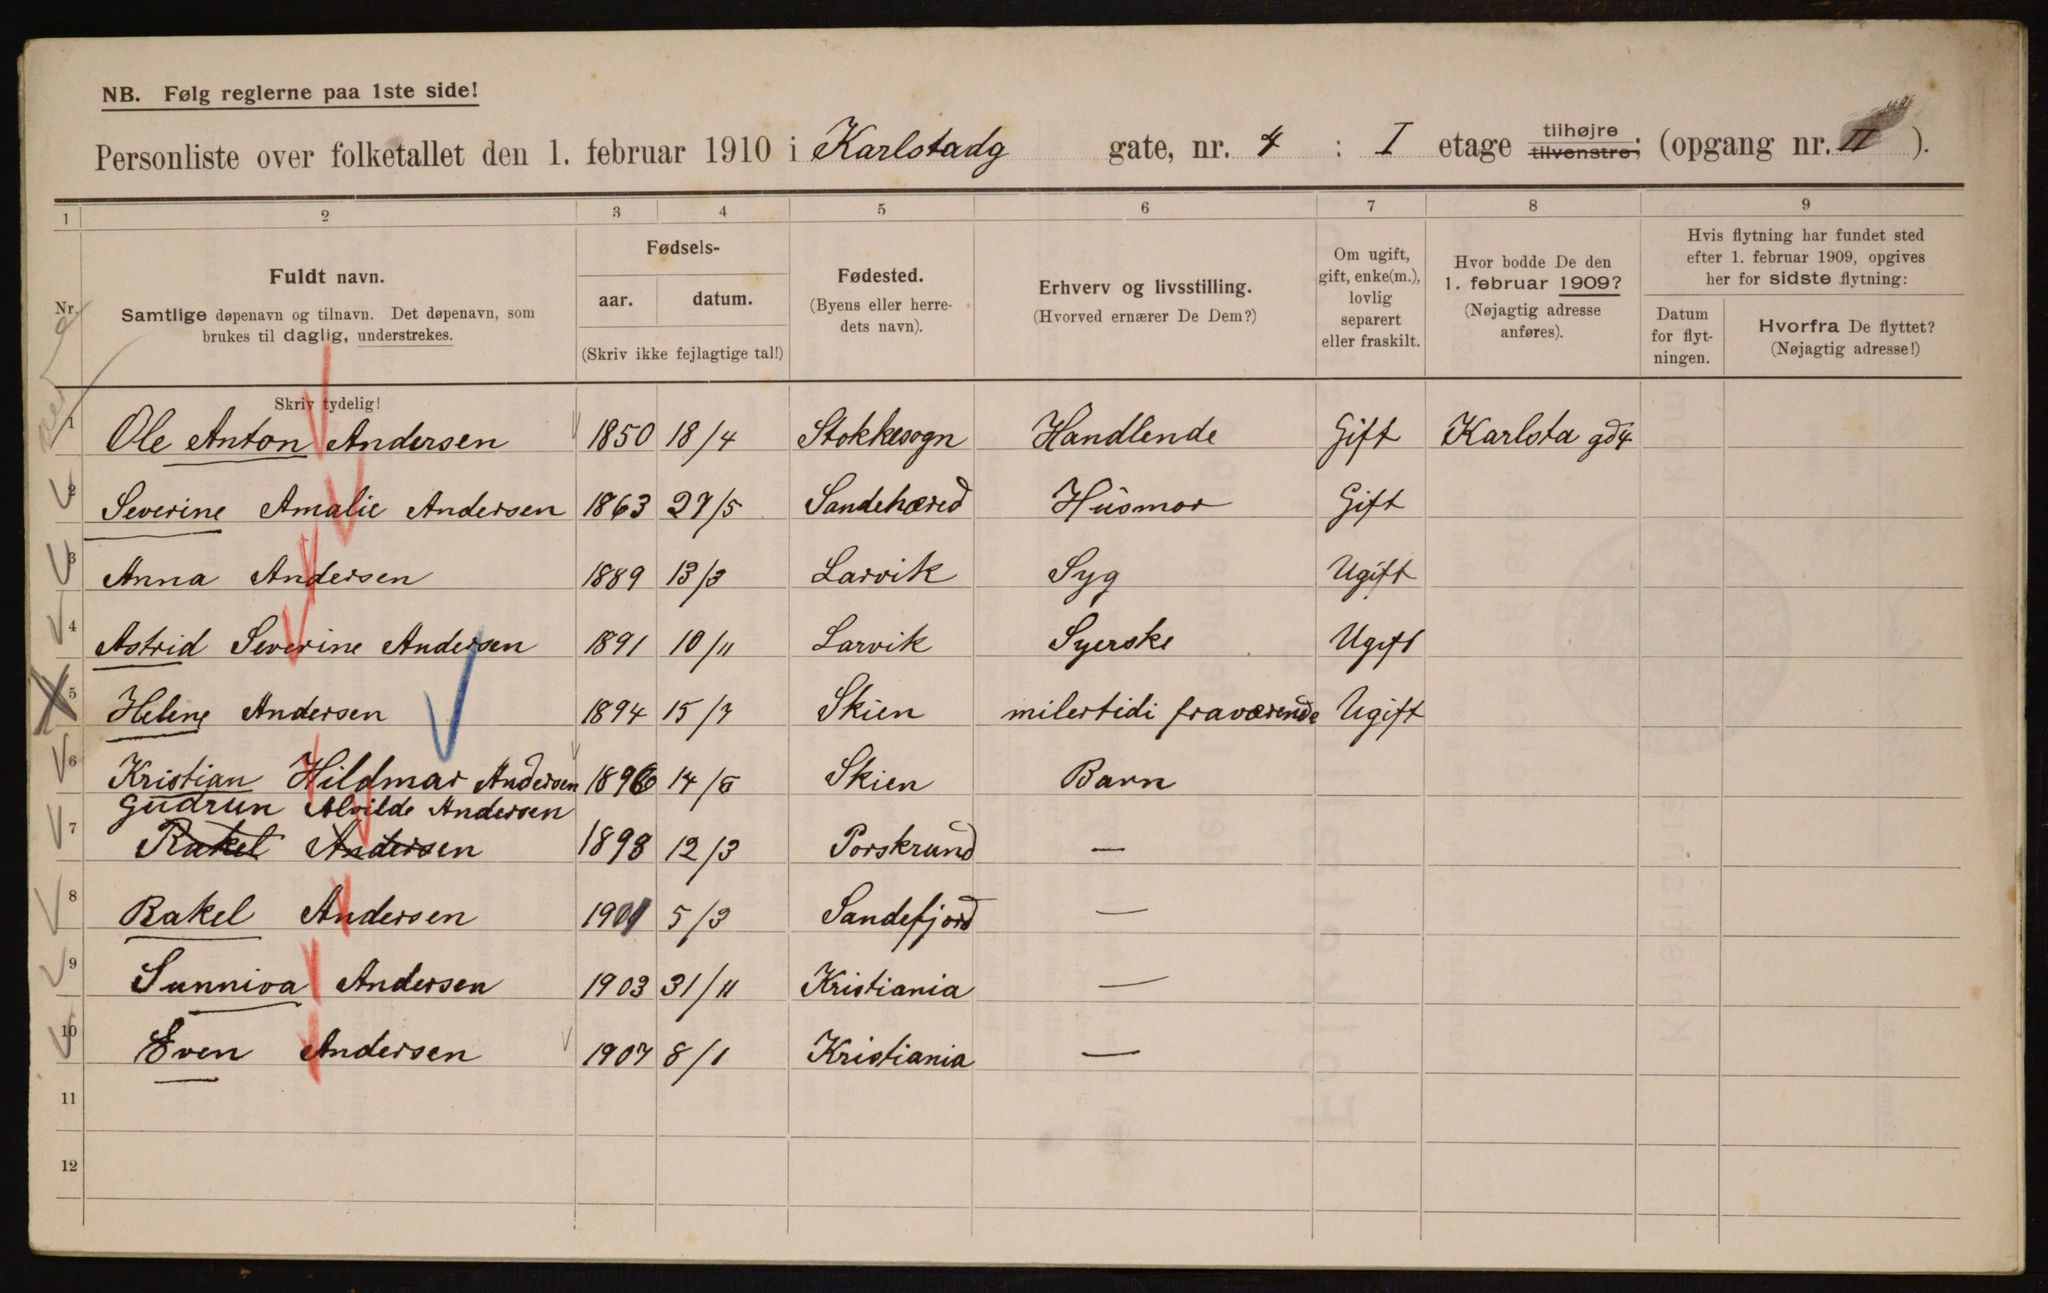 NB. Følg reglerne paa 1ste side!
Personliste over folketallet den 1. februar 1910 i Karlstadg gate, nr. 4 : I etage tilhøjre tilvenstre; (opgang nr. II ).
1 2 3 4 5 6 7 8 9
Nr.
Fuldt navn.
Samtlige døpenavn og tilnavn. Det døpenavn, som
brukes til daglig, understrekes.
Skriv tydelig!
Fødsels-
aar. datum.
(Skriv ikke fejlagtige tal!)
Fødested.
(Byens eller herre-
dets navn).
Erhverv og livsstilling.
(Hvorved ernærer De Dem?)
Om ugift,
gift, enke(m.),
lovlig
separert
eller fraskilt.
Hvor bodde De den
1. februar 1909?
(Nøjagtig adresse
anføres).
Hvis flytning har fundet sted
efter 1. februar 1909, opgives
her for sidste flytning:
Datum
for flyt-
ningen.
Hvorfra De flyttet?
(Nøjagtig adresse!)
1 Ole Anton Andersen 1850 18/4 Stokkesogn Handlende Gift Karlsta gd4
2 Severine Amalie Andersen 1863 27/5 Sandehæred Husmor Gift
3 Anna Andersen 1889 13/3 Larvik Syg Ugift
4 Astrid Severine Andersen 1891 10/11 Larvik Syerske Ugift
5 Helene Andersen 1894 15/7 Skien milertidi fraværende Ugift
6 Kristian Hildmar Andersen 1896 14/6 Skien Barn
Gudrun Alvilde Andersen
7 Rakel Andersen 1898 12/3 Porskrund —
8 Rakel Andersen 1901 5/3 Sandefjord —
9 Sunniva Andersen 1903 31/11 Kristiania —
10 Even Andersen 1907 8/1 Kristiania —
11
12